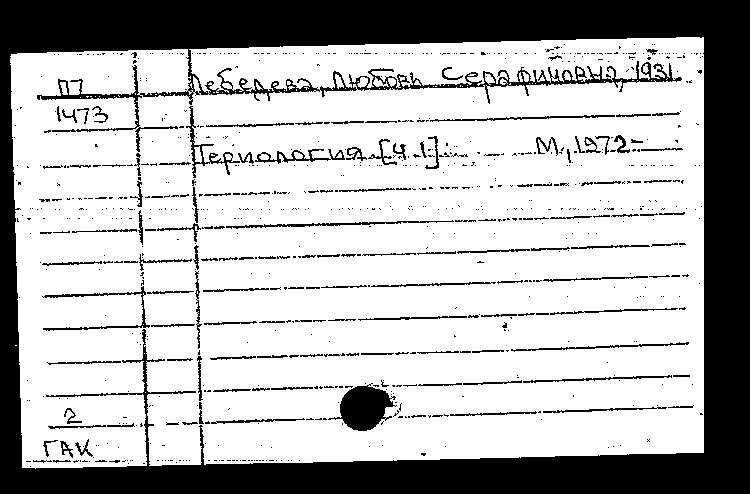 П7 Лебедева, Любовь Серафимовна, 1931
1473
Териология [Ч 1] М., 1972-
2
ГАК